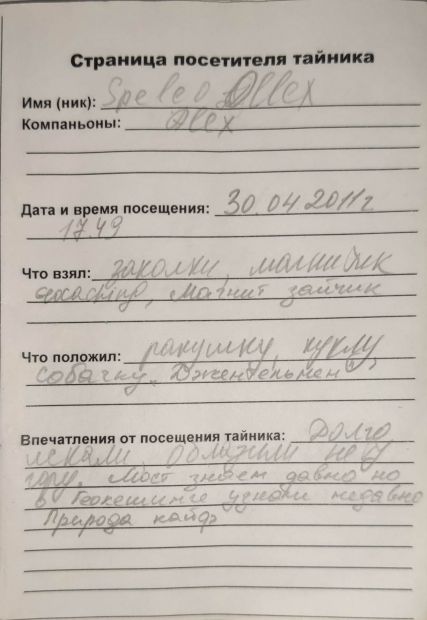 Страница посетителя тайника
Имя (ник): Speleo Allex
Компаньоны: Alex
Дата и время посещения: 30.04.2011г
17.49
Что взял: заколки, магнитик
geocaching, магнит зайчик
Что положил: ракушку, куклу,
собачку "Джентельмен"
Впечатления от посещения тайника: Долго
искали, облазили
гору. Мост знаем давно но
в Геокешинге узнали недавно
Природа кайф